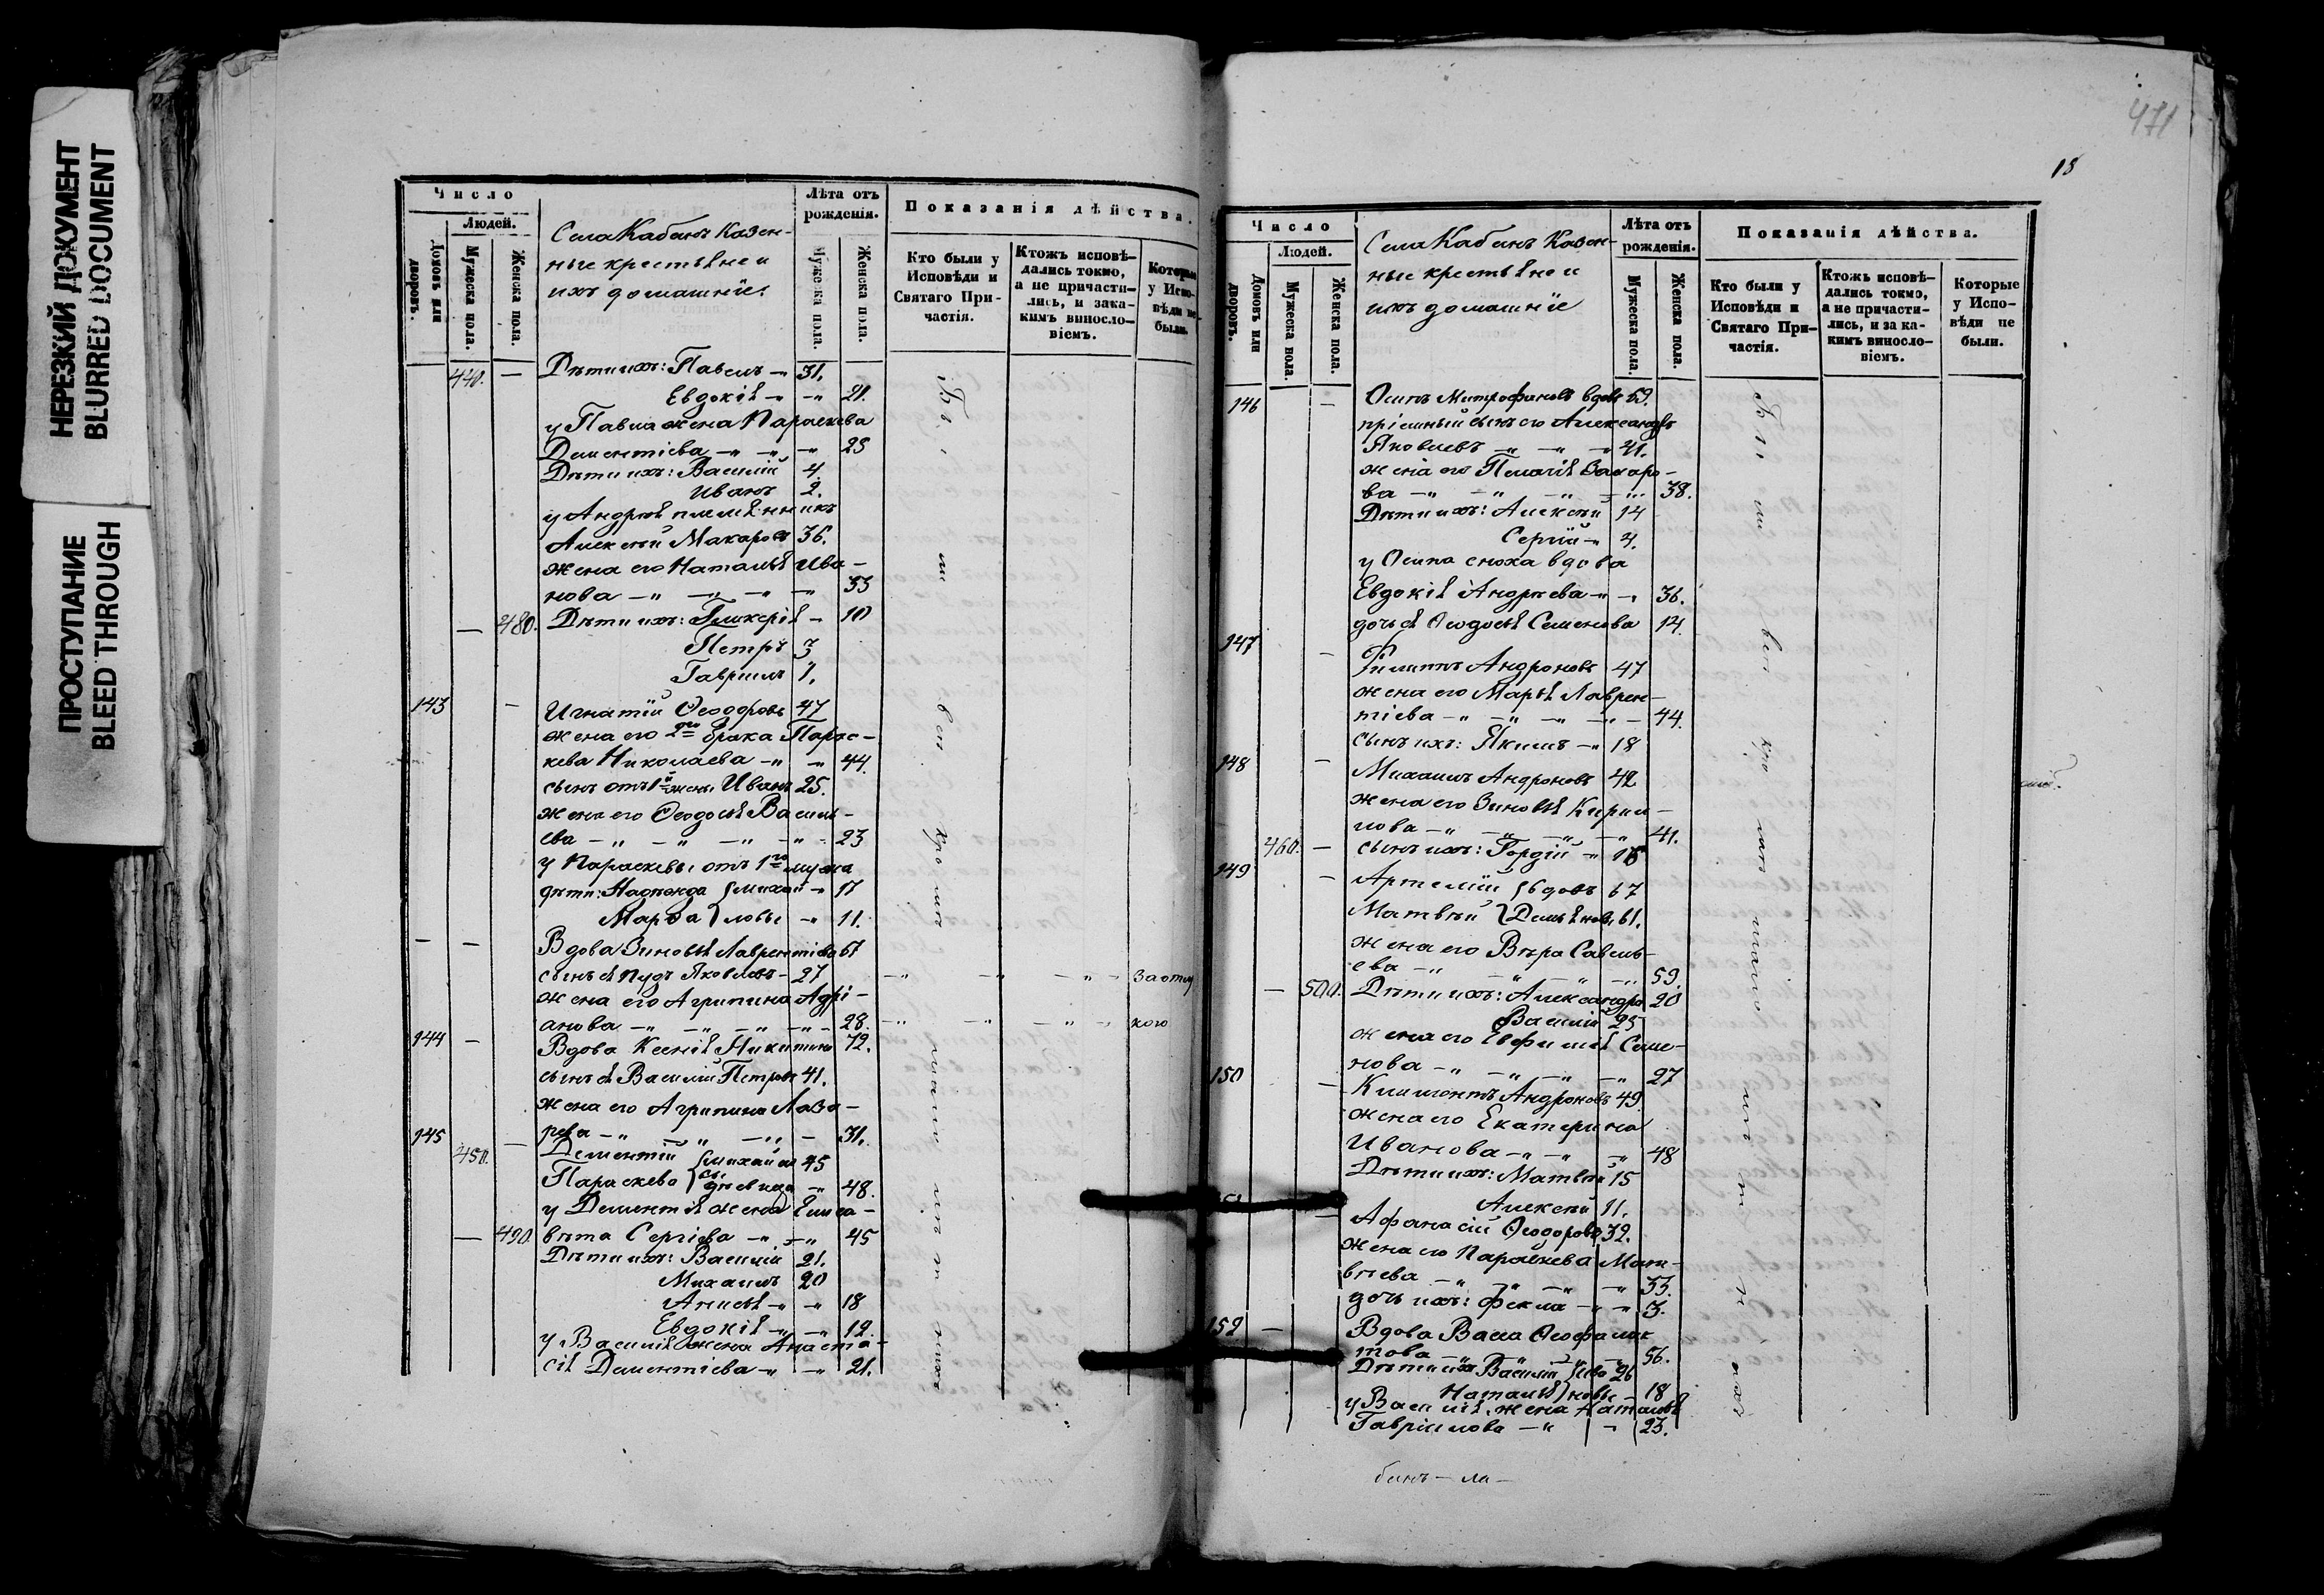 НЕРЕЗКИЙ ДОКУМЕНТ
BLURRED DOCUMENT
ПРОСТУПАНИЕ
BLEED THROUGH
Число
Людей.
Домовъ или дворовъ.
Мужеска пола.
Женска пола.
Села Кабанъ Казен-
ные крестьяне и
ихъ домашніе.
Лѣта отъ
рожденія.
Мужеска пола.
Женска пола.
Показанія дѣйства.
Кто были у
Исповѣди и
Святаго При-
частія.
Ктожъ исповѣ-
дались токмо,
а не причасти-
лись, и зака-
кимъ винсло-
віемъ.
Которые
у Испо-
вѣди не
были.
440. — Дѣти ихъ: Павелъ 31.
Евдокія 21.
у Павла жена Параскева
Дементіева 25
Дѣти ихъ: Василій 4.
Иванъ 2.
у Андрея племянникъ
Алексѣй Макаровъ 36.
жена его Наталья Ива-
нова 33
— 480. Дѣти ихъ: Гликерія 10
Петръ 3
Гавріилъ 1.
143 — Игнатій Ѳеодоровъ 47
жена его 2го брака Парас-
кева Николаева 44.
сынъ отъ 1й жены Иванъ 25.
жена его Ѳеодосья Василь-
ева 23
у Параскевы отъ 1го мужа
дѣти: Надежда Михай 17
Марѳа ловы 11.
— — Вдова Зиновья Лаврентіева 61
сынъ ея Пудъ Яковлевъ 27
жена его Агрипина Адрі-
анова 28.
144 — Вдова Ксенія Никитина 72.
сынъ ея Василій Петровъ 41.
жена его Агрипина Лаза-
рева 31.
145 450. — Дементій Михайло 45
Параскева вы дѣвица 48.
у Дементья жена Елиса-
— 490. вѣта Сергіева 45
Дѣти ихъ: Василій 21.
Михаилъ 20
Анисья 18
Евдокія 12.
у Василія жена Анаста-
сія Дементіева 21.
471
18
Число
Людей.
Домовъ или дворовъ.
Мужеска пола.
Женска пола.
Села Кабанъ Казен-
ные крестьяне и
ихъ домашніе
Лѣта отъ
рожденія.
Мужеска пола.
Женска пола.
Показанія дѣйства.
Кто были у
Исповѣди и
Святаго При-
частія.
Ктожъ исповѣ-
дались токмо,
а не причасти-
лись, и за ка-
кимъ винсло-
віемъ.
Которые
у Испо-
вѣди не
были.
146 — Осипъ Митрофановъ вдовъ 69.
пріемный сынъ его Александръ
Яковлевъ 41.
жена его Пелагія Захаро-
ва 38.
Дѣти ихъ: Алексѣй 14
Сергій 4.
у Осипа сноха вдова
Евдокія Андреева 36.
дочь ея Ѳеодосья Семенова 14.
147 — Филиппъ Андроновъ 47
жена его Марья Лаврен-
тіева 44.
сынъ ихъ: Якимъ 18
148 — Михаилъ Андроновъ 42
жена его Зиновья Кирил-
лова 41.
460. — сынъ ихъ: Гордій 16
149 — Артемій вдовъ 67
Матвѣй Демьяновы 61.
жена его Вѣра Савель-
ева 59.
— 500. Дѣти ихъ: Александра 20
Василій 25
жена его Евфимія Семе-
нова 27
150 — Климонтъ Андроновъ 49.
жена его Екатерина
Иванова 48
Дѣти ихъ: Матвѣй 15
Алексѣй 11.
— Афанасій Ѳеодоровъ 32.
жена его Параскева Мат-
вѣева 33.
дочь ихъ: Фекла 3.
152 — Вдова Васса Ѳеофилак
това 56.
Дѣти ихъ Василій 26
Наталья новы 18
у Василія жена Наталья
Гавріилова 23.
банъ — ла —